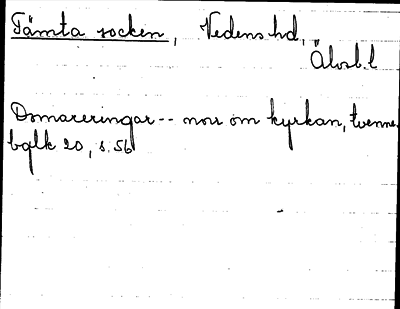 Tämta socken, Vedens hd,
Älvsb. l
Domareringar -- norr om kyrkan, tvenne.
bglk 20, s. 56